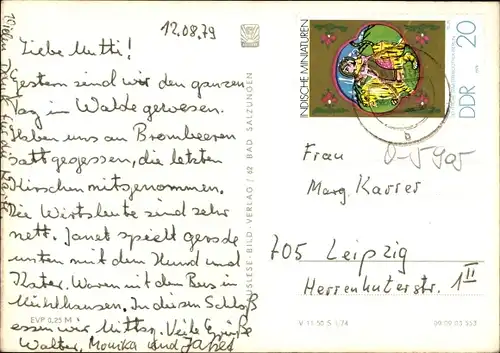 12.08.79
Liebe Mutti!
Gestern sind wir den ganzen
Tag in Walde gewesen.
Haben uns an Brombeeren
satt gegessen, die letzten
Kirschen mitgenommen.
Die Wirtsleute sind sehr
nett. Janet spielt gerade
unten mit dem Hund und
Kater. Waren mit dem Bus in
Mühlhausen. In diesem Schloß
essen wir Mittag. Viele Grüße
Walter, Monika und Janet
Vielen Dank für die Karte
EVP 0,25 M
AUSLESE-BILD-VERLAG / 62 BAD SALZUNGEN
INDISCHE MINIATUREN
DDR 20
Frau
Marg. Karrer
705 Leipzig
Herrenhuterstr. 1 II
V 11 50 S 1/74